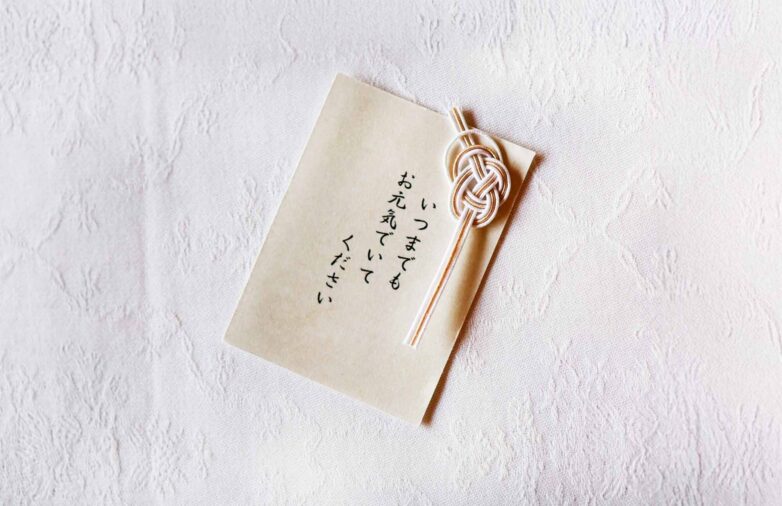 いつまでも
お元気でいて
ください